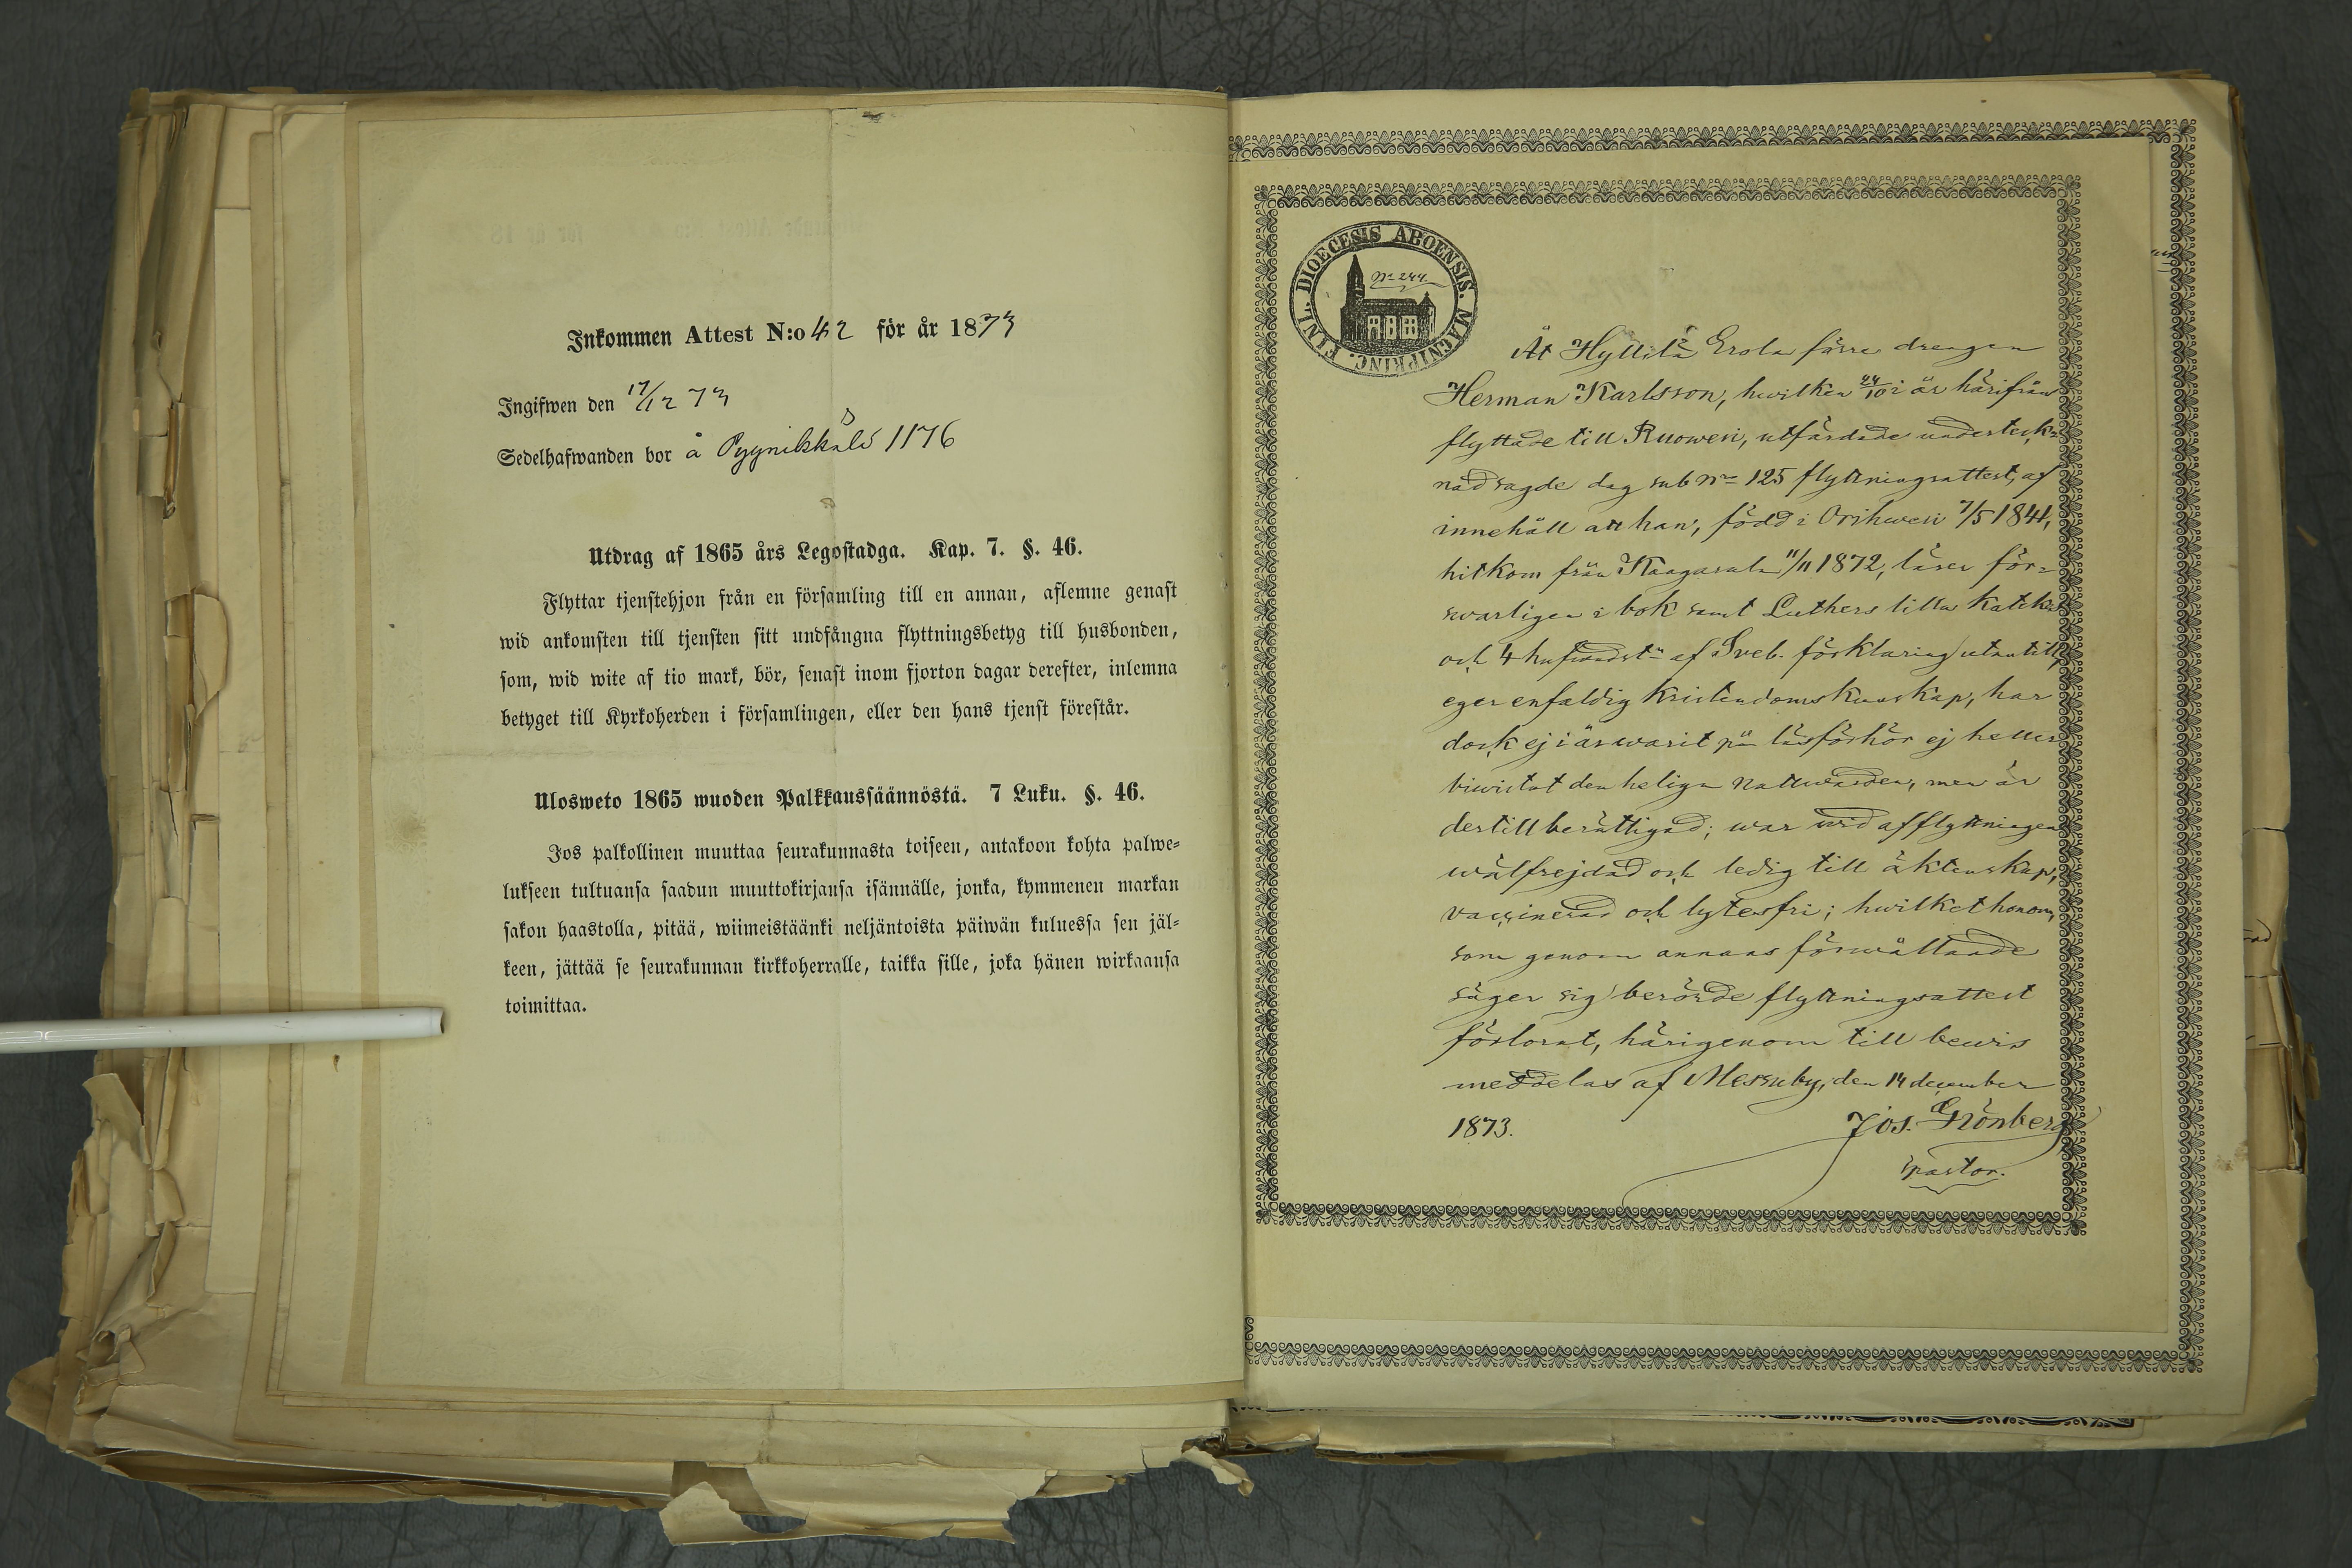 Inkommen Attest N:o 42 för år 1873
Ingifwen den 17/12 73
Sedelhafwanden bor å 1176
Utdrag af 1865 års Legostadga. Kap. 7. §. 46.
Flyttar tjenstehjon från en församling till en annan, aflemne genast
wid ankomsten till tjensten sitt undfångna flyttningsbetyg till husbonden,
som, wid wite af tio mark, bör, senast inom fjorton dagar derefter, inlemna
betyget till Kyrkoherden i församlingen, eller den hans tjenst förestår.
Ulosweto 1865 wuoden Palkkaussäännöstä. 7 Luku. §. 46.
Jos palkollinen muuttaa seurakunnasta toiseen, antakoon kohta palwe-
lukseen tultuansa saadun muuttokirjansa isännälle, jonka, kymmenen markan
sakon haastolla, pitää, wiimeistäänki neljäntoista päiwän kuluessa sen jäl-
keen, jättää se seurakunnan kirkkoherralle, taikka sille, joka hänen wirkaansa
toimittaa.
DIOECESIS ABOENSIS. MAGNIPRINC. FINL.
No 244
Åt Hyllilä Erola förre drengen
Herman Karlsson, hwilken 24/10 i år härifrån
flyttade till Ruowesi, utfärdade underteck=
nad sagde dag sub No 125 flyttningsattest, af
innehåll att han, född i Orihwesi 7/5 1841,
hitkom från Kangasala 11/11 1872, läser för=
swarligen i bok samt Luthers lilla Katekes
och 4 hufwudst. af Sveb. förklaring utantill,
eger enfaldig Kristendomskunskap, har
dock ej i år warit på läsförhör ej heller
biwistat den heliga Nattwarden, men är
dertill berättigad; war wid afflyttningen
wälfrejdad och ledig till äktenskap,
vaccinerad och lytesfri; hwilket honom,
som genom annans förwållande
säger sig berörde flyttningsattest
förlorat, härigenom till bewis
meddelas af Messuby, den 14 december
1873. Jos. Grönberg
pastor.